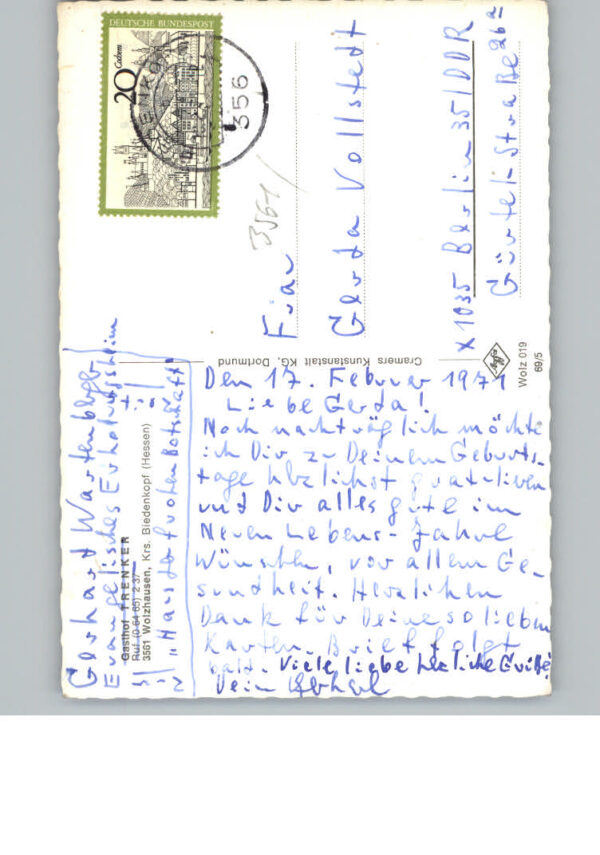 DEUTSCHE BUNDESPOST
20 Cochem
356
3561
Frau
Gerda Vollstedt
X 1035 Berlin 35/DDR
Gürtel-Straße 26a
Cramers Kunstanstalt KG, Dortmund
Wolz 019
69/5
Gerhard
Evangelisches Erholungsheim
"Haus der frohen Botschaft"
Gasthof TRENKER
Ruf (0 64 65) 2 37
3561 Wolzhausen, Krs. Biedenkopf (Hessen)
Den 17. Februar 1971
Liebe Gerda!
Noch nachträglich möchte
ich Dir zu Deinem Geburts-
tage hrzlichst gratulieren
und Dir alles gute im
Neuen Lebens-Jahre
wünschen, vor allem Ge-
sundheit. Herzlichen
Dank für Deine so lieben
Karten. Brief folgt
bald. Viele liebe hrzliche Grüße
Dein Gerhard